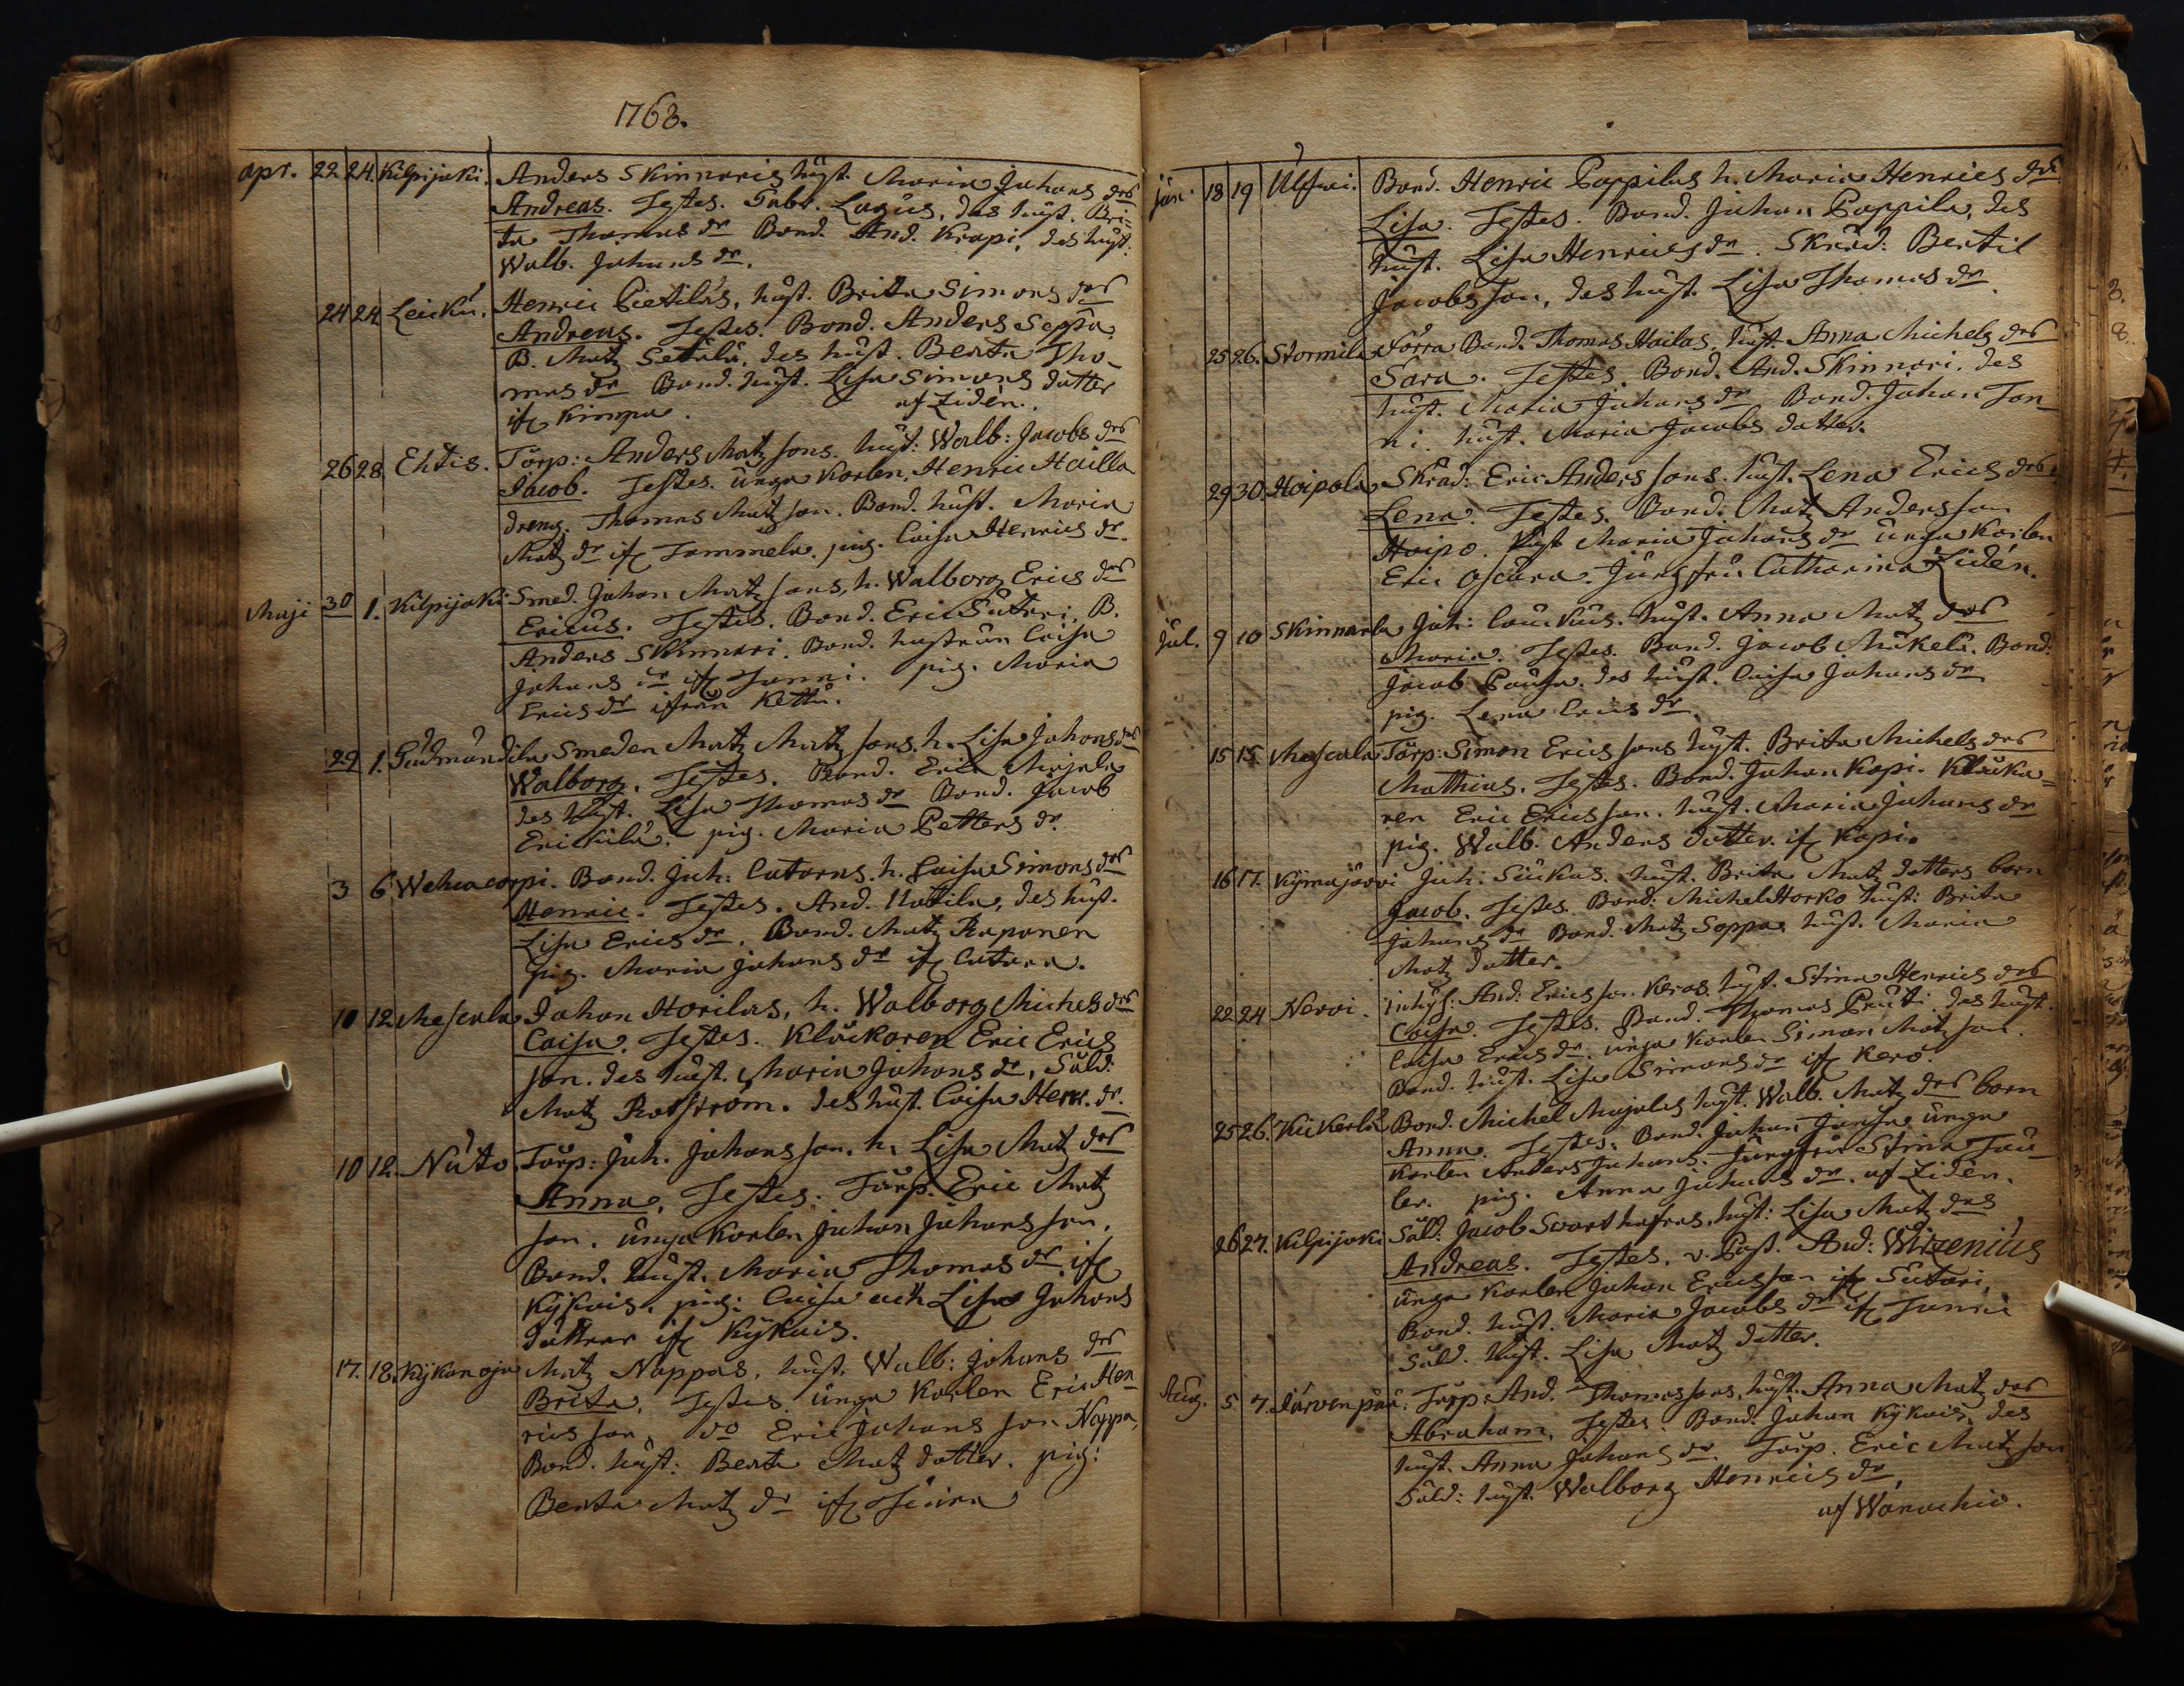 1768.
apr. 22 24. Kilpijoki. Anders Skinnaris hust. Maria Johans drs
Andreas. Testes. Gabr. Lagus, des hust. Bri-
ta Thomas dr Bond. And. Krapi, des hust.
Walb. Johans dr.
24 24 Leickú. Henric Pietilas, hust. Brita Simons drs
Andreas. Testes. Bond. Anders Seppä
B. Matz Setälä, des hust. Beata Tho-
mas dr Bond. hust. Lisa Simons dotter
ifr Kimpa. af Zidén.
26 28. Ehtis. Torp: Anders Matz sons hust: Walb: Jacobs drs
Jacob. Testes. unga Karlen, Henric Hailla
dreng. Thomas Matz son. Bond. hust. Maria
Matz dr ifr Tommela. pig. Caisa Henrics dr.
Maji 30 1. Kilpijoki Smed. Johan Matz sons, h. Walborg Erics drs
Ericus. Testes. Bond. Eric Sutari, B.
Anders Skinnari. Bond. hustrun Caisa
Johans dr ifr Junni. pig. Maria
Erics dr ifrån Kettu.
29 1. Gudmundila Smeden Matz Matz sons. h. Lisa Johans drs
Walborg. Testes. Bond. Eric Majala
des hust. Lisa Thomas dr Bond. Jacob
Erickilä. pig. Maria Petters dr.
3 6 Wehacorpi. Bond. Joh: Catarns. h. Caisa Simons drs
Henric. Testes. And. Uotila, des hust.
Lisa Erics dr. Bond. Matz Raponen
pig. Maria Johans dr ifr Catara.
10 12. Mascala Johan Horilas, h. Walborg Michels drs
Caisa. Testes. Klåckaren Eric Erics
son. des hust. Maria Johans dr, Sold:
Matz Rotström. des hust. Caisa Henr. dr.
10 12. Nuto Torp: Joh. Johans son. h. Lisa Matz drs
Anna. Testes. Torp. Eric Matz
son. unga Karlen Johan Johans son.
Bond. hust. Maria Thomas dr ifr
Kÿkois. pig: Caisa och Lisa Johans
döttrar ifr Kÿkois.
17. 18. Kÿkonoja Matz Nappas, hust. Walb: Johans drs
Brita. Testes. unga Karlen Eric Hen-
rics son, do Eric Johans son Nappa,
Bond. hust: Beata Matz dotter. pig:
Beata Matz dr ifr
jun. 18 19 Bond. Henric Pappilas h. Maria Henrics drs
Lisa. Testes. Bond. Johan Pappila, des
hust. Lisa Henrics dr. Skräd: Bertil
Jacobs son, des hust. Lisa Thomas dr.
25 26. Stormila Förra Bond. Thomas Hailas, hust. Anna Michels drs
Sara. Testes. Bond. And. Skinnari, des
hust. Maria Johans dr Bond. Johan Jon-
ni hust. Maria Jacobs dotter.
29 30. Hoipola Skräd: Eric Anders sons. hust. Lena Erics drs
Lena. Testes. Bond. Matz Anders son
Hoipo. hust Maria Johans dr unga Karlen
Eric Jungfru Catharina Zidén.
Jul. 9 10 Skinnarla Joh: hust. Anna Matz drs
Maria. Testes. Bond. Jacob Mickeli. Bond:
Jacob Pausa. des hust. Caisa Johans dr
pig. Lena Erics dr
15 15 Mascala Torp: Simon Erics sons hust. Brita Michels drs
Mathias. Testes. Bond. Johan Kopi. Klåcka-
ren Eric Erics son. hust. Maria Johans dr
pig. Walb. Anders dotter. ifr Kopi.
16 17. Kÿmajärvi Joh: Suckas. hust. Brita Matz dotters barn
Jacob. Testes. Bond: Michel Horko hust: Brita
Johans dr Bond. Matz Soppas hust. Maria
Matz dotter.
22 24 Nervi. inhÿs: And: Erics son Keros. hust. Stina Henrics drs
Caisa. Testes. Bond. Thomas Pruti des hust.
Caisa Erics dr. unga Karlen Simon Matz son.
Bond. hust. Lisa Simons dr ifr Kero.
25 26. Kickerla Bond. Michel Majalas hust. Walb. Matz drs barn
Anna. Testes. Bond. Johan Jansa unga
Karlen Anders Johans. Jungfru Stina Tau-
ler. pig. Anna Johans dr. af Zidén.
26 27. Kilpijoki Sold. Jacob Svarthafras, hust: Lisa Matz drs
Andreas. Testes. v. Past. And: Wirzenius
unga Karlen Johan Erics son ifr Sutari,
Bond. hust. Maria Jacobs dr ifr Junni
Sold. hust. Lisa Matz dotter.
Aug. 5 7. Järvenpää. Torp. And. Thomas sons, hust. Anna Matz drs
Abraham. Testes. Bond. Johan Kÿkois, des
hust. Anna Johans dr. Torp. Eric Matz son
Sold: hust. Walborg Henrics dr.
af Wånachio.